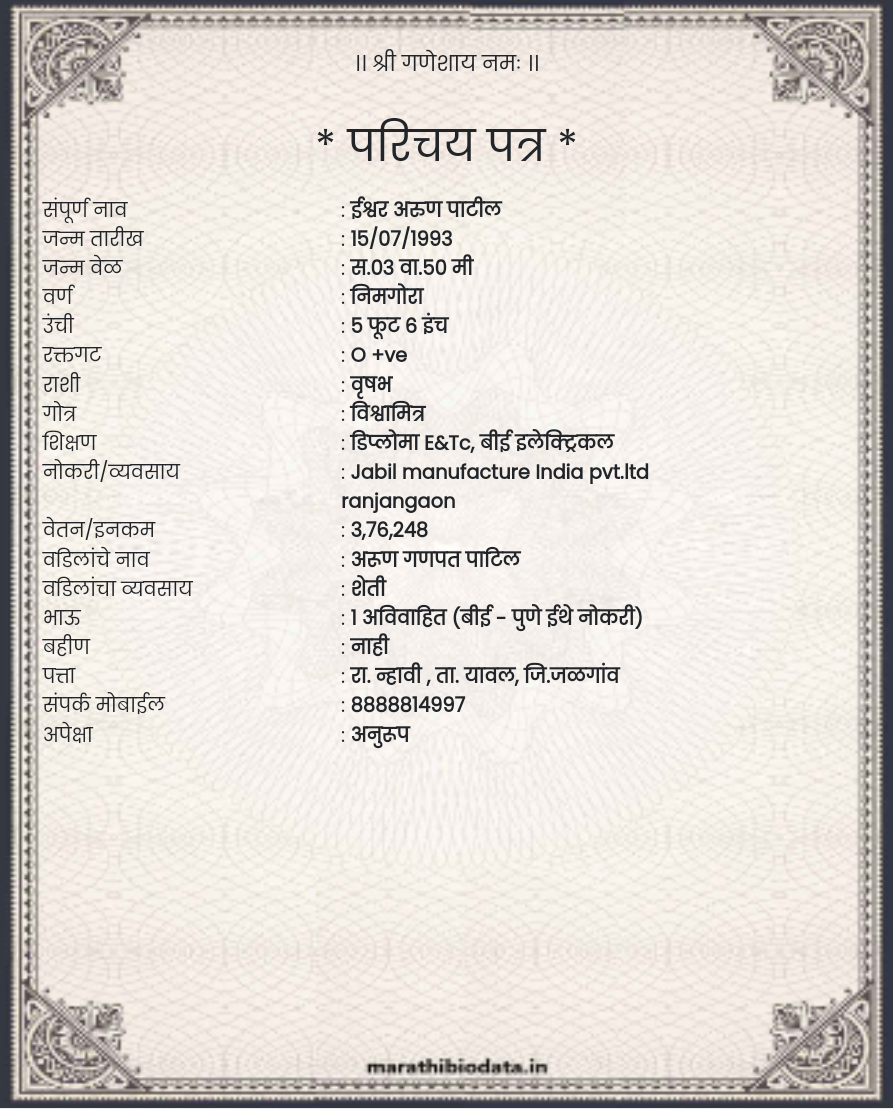 ।। श्री गणेशाय नमः ।।
* परिचय पत्र *
संपूर्ण नाव : ईश्वर अरुण पाटील
जन्म तारीख : 15/07/1993
जन्म वेळ : स.03 वा.50 मी
वर्ण : निमगोरा
उंची : 5 फूट 6 इंच
रक्तगट : O +ve
राशी : वृषभ
गोत्र : विश्वामित्र
शिक्षण : डिप्लोमा E&Tc, बीई इलेक्ट्रिकल
नोकरी/व्यवसाय : Jabil manufacture India pvt.ltd
ranjangaon
वेतन/इनकम : 3,76,248
वडिलांचे नाव : अरूण गणपत पाटिल
वडिलांचा व्यवसाय : शेती
भाऊ : 1 अविवाहित (बीई - पुणे ईथे नोकरी)
बहीण : नाही
पत्ता : रा. न्हावी , ता. यावल, जि.जळगांव
संपर्क मोबाईल : 8888814997
अपेक्षा : अनुरूप
marathibiodata.in